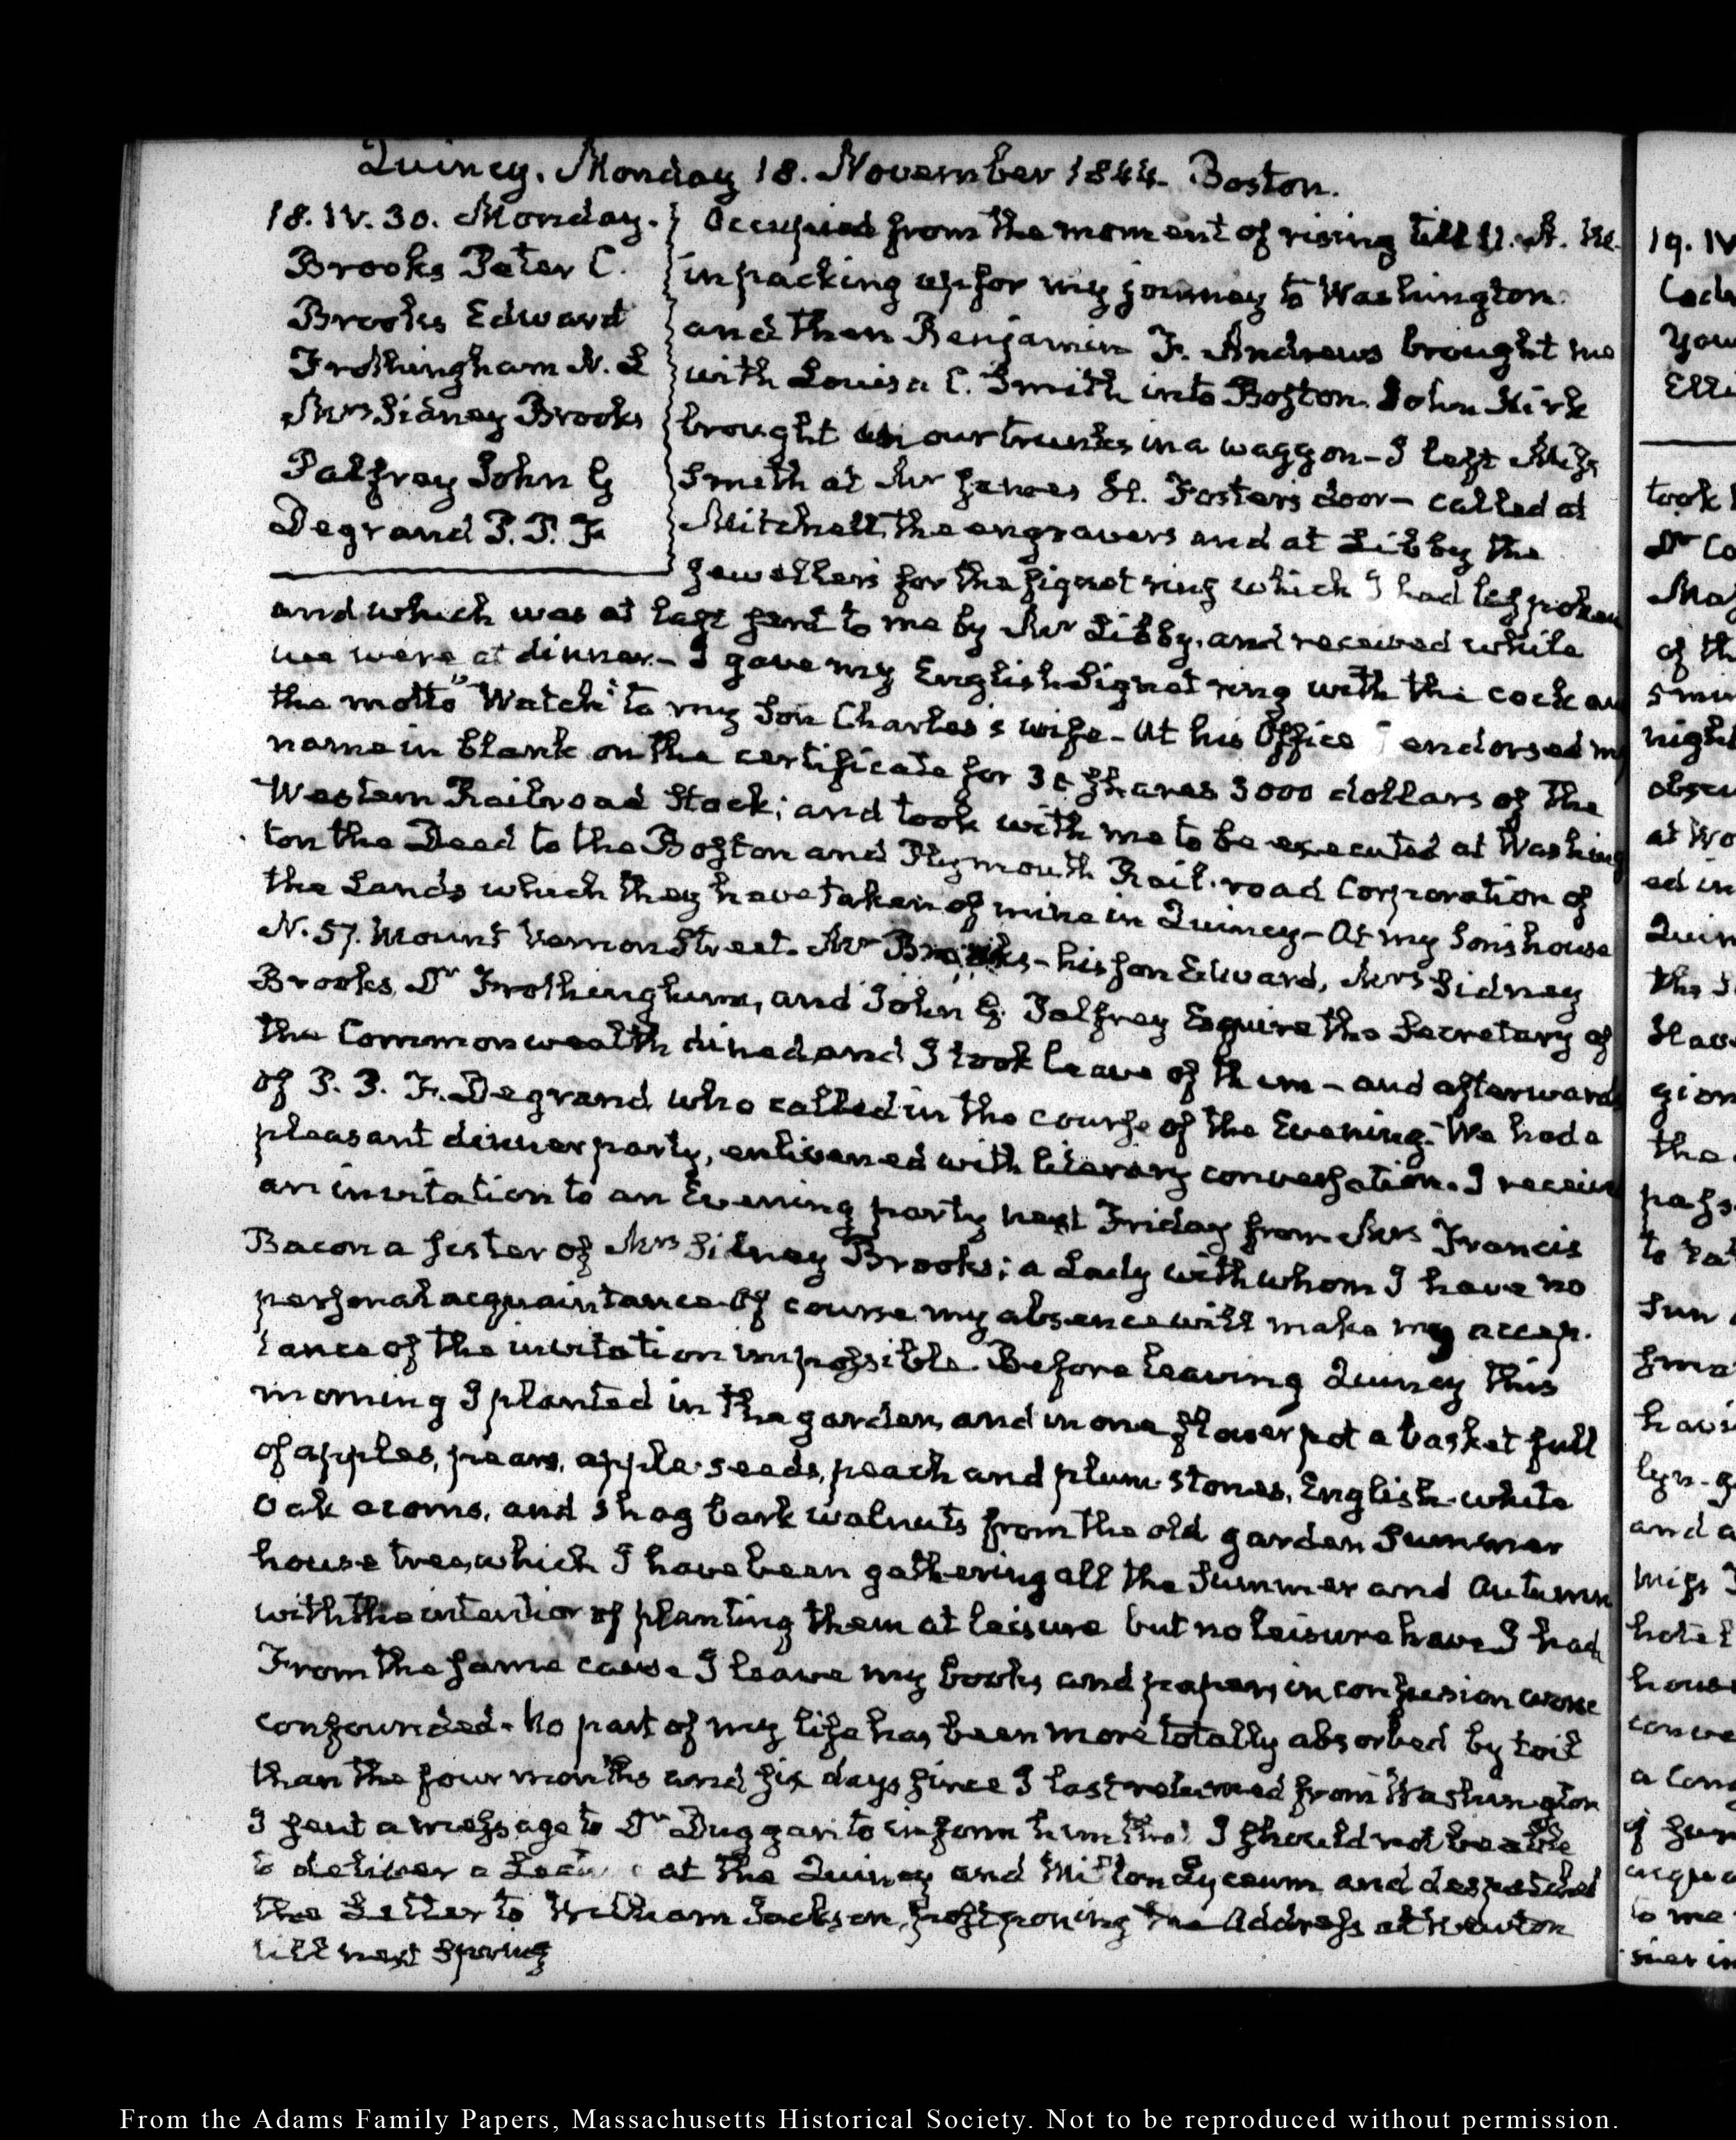 Quincy. Monday 18. November 1844. Boston.
18. IV. 30. Monday.
Brooks Peter C.
Brooks Edward
Frothingham N. L
Mrs Sidney Brooks
Palfrey John G
Degrand P. P. F
Occupied from the moment of rising till 11. A.M.
in packing up for my journey to Washington
and then Benjamin F. Andrews brought me
with Louisa C. Smith into Boston. John Kirk
brought in our trunks in a waggon – I left Miss
Smith at Mr James H. Foster's door – called at
Mitchell, the engravers and at Libby the
Jewellers for the signet ring which I had bespoken
and which was at last sent to me by Mr Libby, and received while
we were at dinner – I gave my English Signet ring with the cock and
the motto "Watch" to my Son Charles's wife – At his Office I endorsed my
name in blank on the certificate for 30 shares 3000 dollars of the
Western Railroad Stock; and took with me to be executed at Washing
ton the Deed to the Boston and Plymouth Rail-road Corporation of
the Lands which they have taken of mine in Quincy – At my Son's house
N. 57. Mount Vernon Street. Mr Brooks – his son Edward, Mrs Sidney
Brooks, Dr Frothingham, and John G. Palfrey Esquire the Secretary of
the Commonwealth dined, and I took leave of them – and afterwards
of P. P. F. Degrand who called in the course of the Evening – We had a
pleasant dinner party, enlivened with literary conversation. I received
an invitation to an Evening party next Friday from Mrs Francis
Bacon a sister of Mrs Sidney Brooks; a Lady with whom I have no
personal acquaintance. Of course my absence will make my accep-
tance of the invitation impossible. Before leaving Quincy this
morning I planted in the garden, and in one flower pot a basket full
of apples, pears, apple-seeds, peach and plum-stones, English-white
Oak acorns, and shag bark walnuts from the old garden Summer
house tree, which I have been gathering all the Summer and Autumn
with the intention of planting them at leisure but no leisure have I had
From the same cause I leave my books and papers in confusion worse
confounded – No part of my life has been more totally absorbed by toil
than the four months and six days since I last returned from Washington
I sent a message to Dr Duggan to inform him that I should not be able
to deliver a Lecture at the Quincy and Milton Lyceum and despatched
the Letter to William Jackson, postponing the Address at Newton
till next Spring